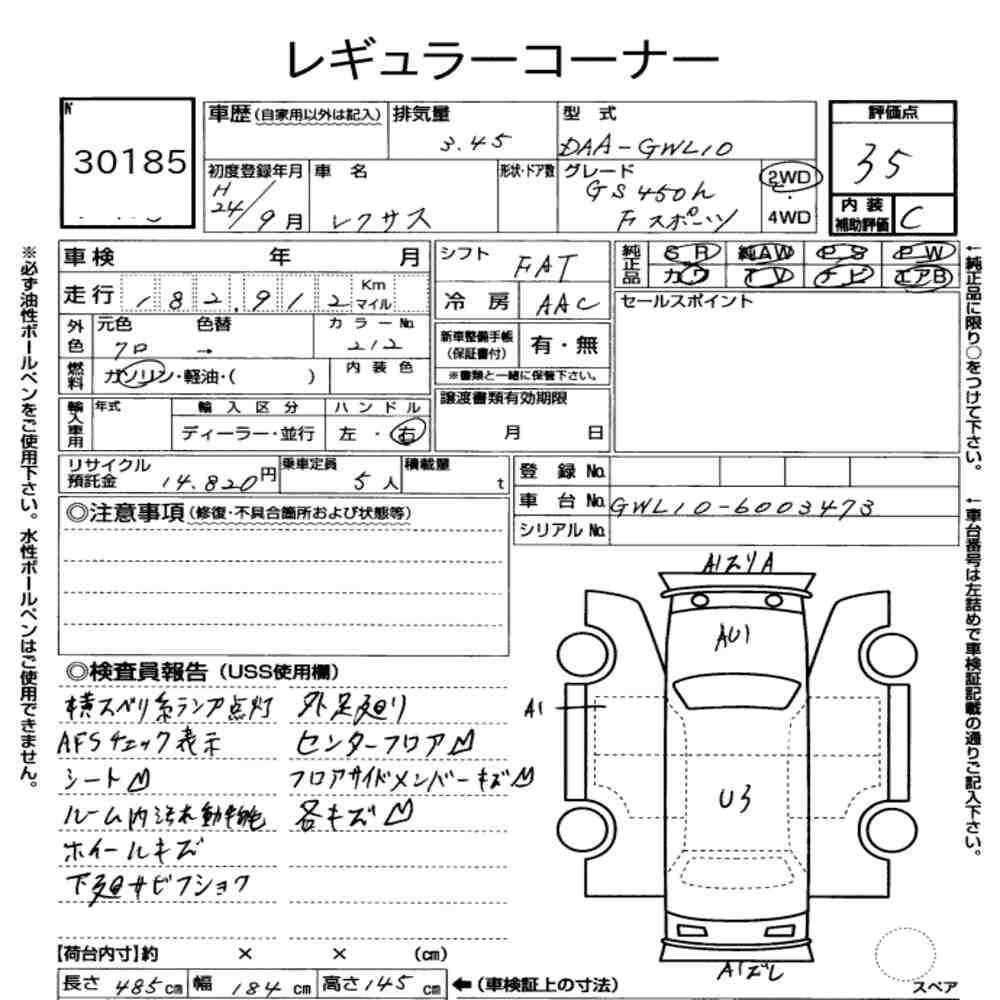 レギュラーコーナー
№
30185
車歴(自家用以外は記入)
排気量
3.45
型 式
DAA-GWL10
評価点
35
初度登録年月
H
24/9月
車 名
レクサス
形状・ドア数
グレード
GS450h
Fスポーツ
2WD
4WD
内 装
補助評価
C
車検 年 月
走行 182,912 Km
マイル
シフト
FAT
冷 房
AAC
純正品
SR 純AW PS PW
カワ TV ナビ エアB
セールスポイント
外色
元色 色替
クロ →
カラーNo.
212
燃料
ガソリン・軽油・( )
内 装 色
新車整備手帳
(保証書付)
有・無
※書類と一緒に保管下さい。
輸入車用
年式
輸 入 区 分
ディーラー・並行
ハ ン ド ル
左 ・ 右
譲渡書類有効期限
月 日
リサイクル
預託金
14.820円
乗車定員
5人
積載量
t
登 録 No.
車 台 No. GWL10-6003473
シリアル No.
◎注意事項(修復・不具合箇所および状態等)
◎検査員報告(USS使用欄)
横スベリ系ランプ点灯 外足廻り
AFSチェック表示 センターフロア凹
シート凹 フロアサイドメンバーキズ凹
ルーム内汚れ 各キズ凹
ホイールキズ
下廻サビフショク
A1スリA
AU1
A1
U3
スペア
【荷台内寸】約 × × (cm)
長さ 485cm 幅 184cm 高さ145cm
←(車検証上の寸法)
※必ず油性ボールペンをご使用下さい。水性ボールペンはご使用できません。
←純正品に限り○をつけて下さい。
←車台番号は左詰めで車検証記載の通りご記入下さい。